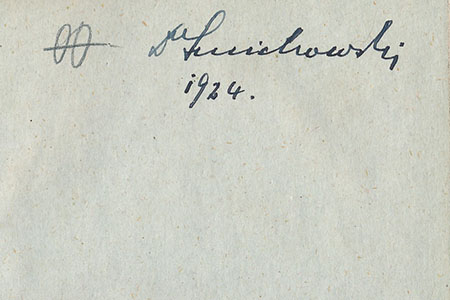 Dr Smichowski
1924.